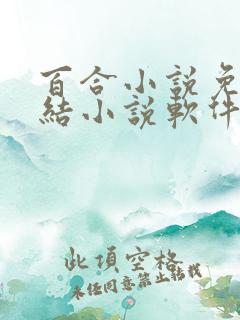 百合小說免
結小說軟件
此項空格
未经同意禁止转载